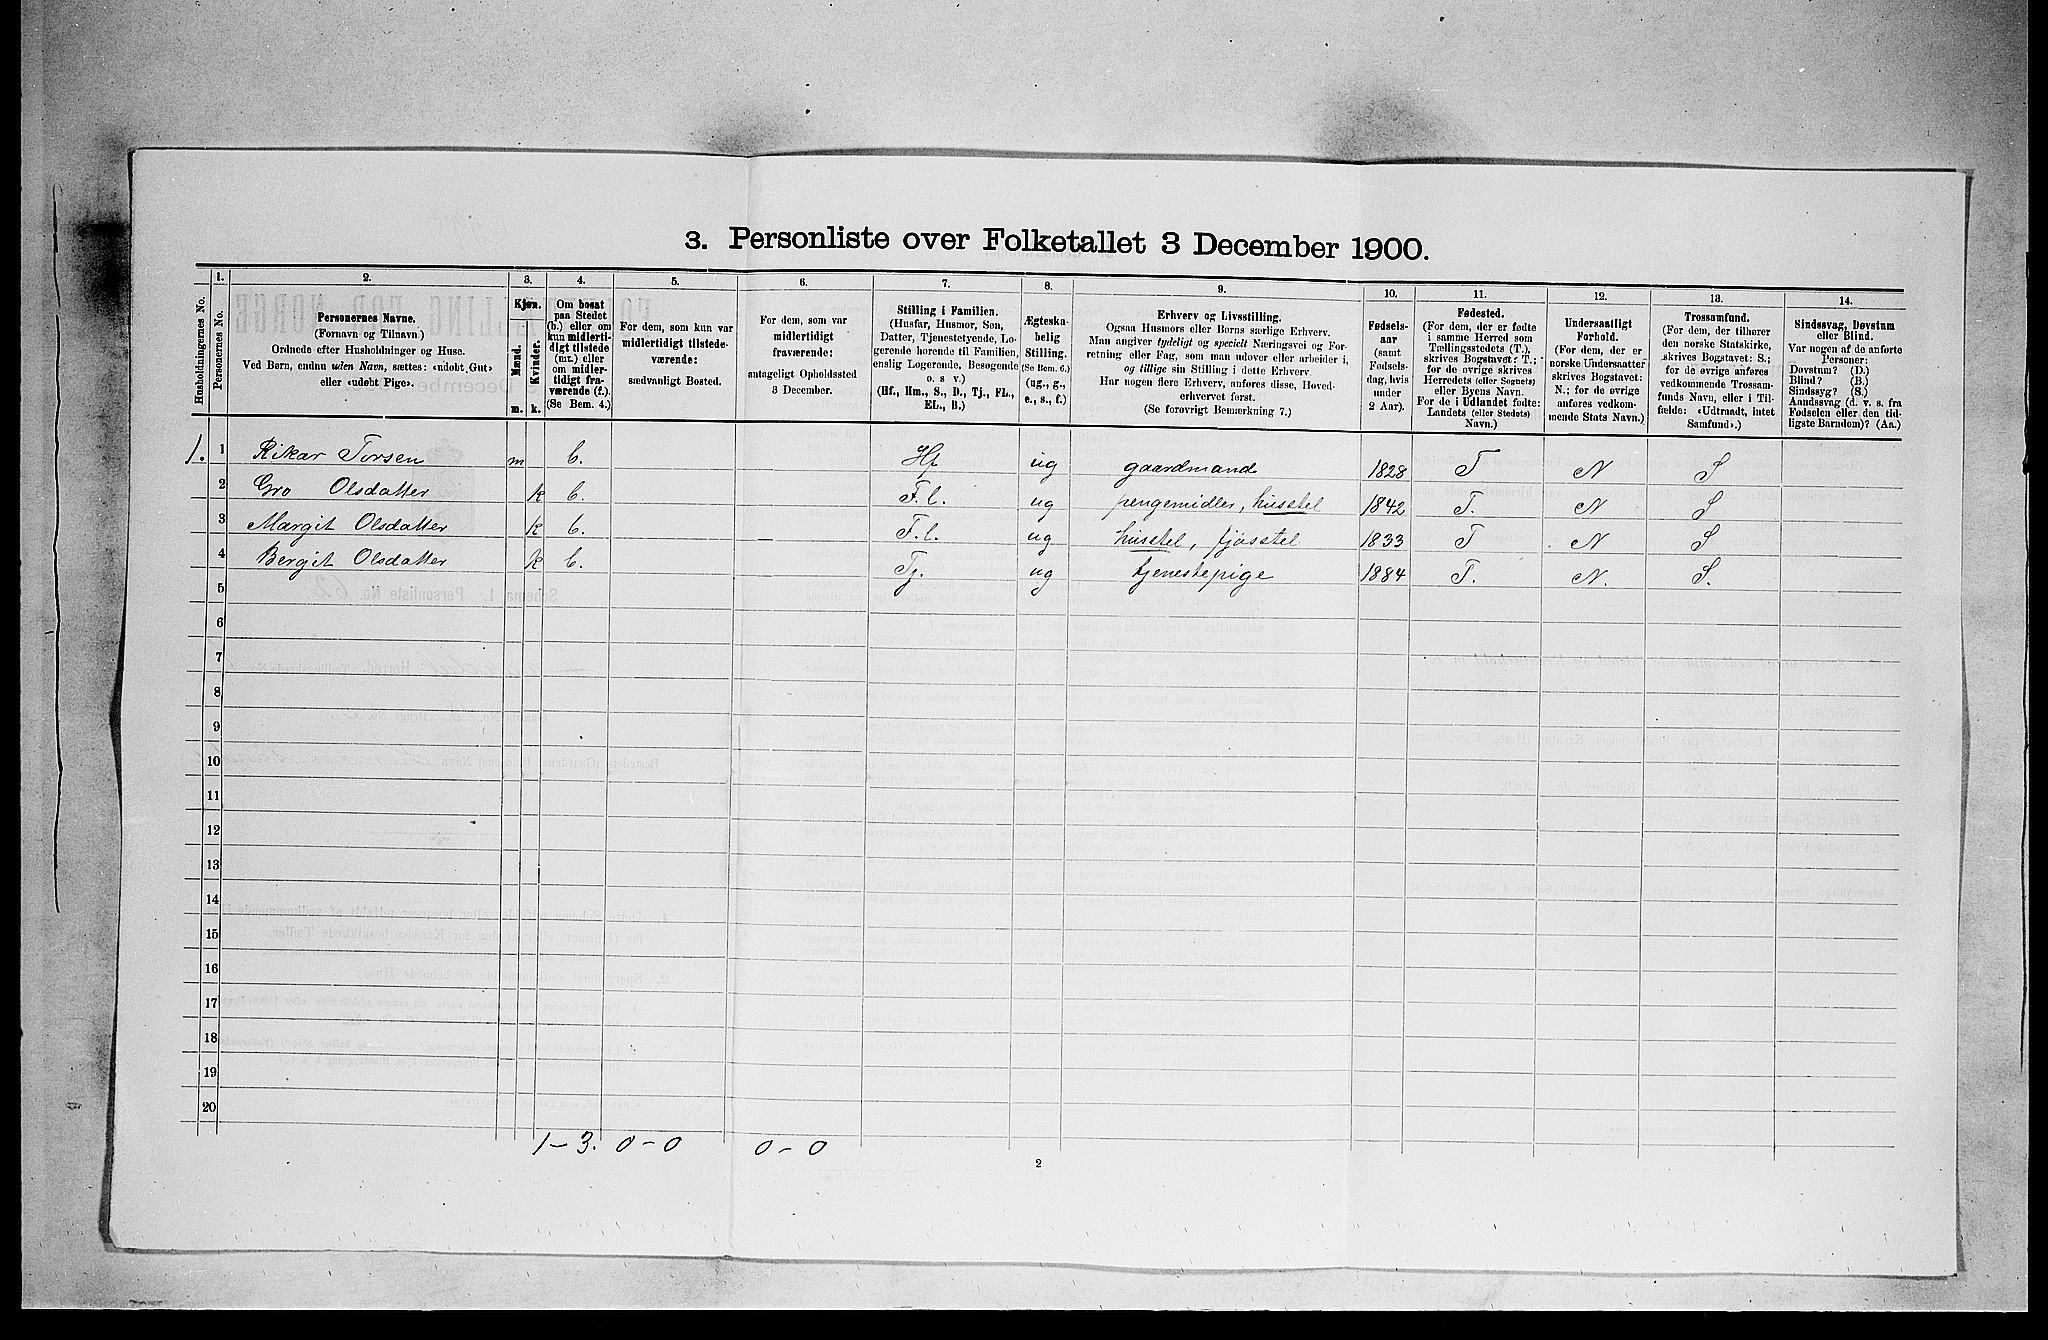 3. Personliste over Folketallet 3 December 1900.
1. 2. 3. 4. 5. 6. 7. 8. 9. 10. 11. 12. 13. 14.
Husholdningernes No.
Personernes No.
Personernes Navne.
(Fornavn og Tilnavn)
Ordnede efter Husholdninger og Huse.
Ved Børn, endnu uden Navn, sættes: «udøbt Gut»
eller «udøbt Pige».
Kjøn.
Mænd.
Kvinder.
m. k.
Om bosat
paa Stedet
(b.) eller om
kun midlerti-
digt tilstede
(mt.) eller
om midler-
tidigt fra-
værende (f.).
(Se Bem. 4.)
For dem, som kun var
midlertidigt tilstede-
værende:
sædvanligt Bosted.
For dem, som var
midlertidigt
fraværende:
antageligt Opholdssted
3 December.
Stilling i Familien.
(Husfar, Husmor, Søn,
Datter, Tjenestetyende, Lo-
gerende hørende til Familien,
enslig Logerende, Besøgende
o. s v.)
(Hf., Hm., S., D., Tj., FL.,
EL., B.)
Ægteska-
belig
Stilling.
(Se Bem. 6.)
(ug., g.,
e., s., f.)
Erhverv og Livsstilling.
Ogsaa Husmors eller Børns særlige Erhverv.
Man angiver tydeligt og specielt Næringsvei og For-
retning eller Fag, som man udøver eller arbeider i,
og tillige sin Stilling i dette Erhverv.
Har nogen flere Erhverv, anføres disse, Hoved-
erhvervet først.
(Se forøvrigt Bemærkning 7.)
Fødsels-
aar
(samt
Fødsels-
dag, hvis
under
2 Aar).
Fødested.
(For dem, der er fødte
i samme Herred som
Tællingsstedets (T.),
skrives Bogstavet: T.;
for de øvrige skrives
Herredets (eller Sognets)
eller Byens Navn.
For de i Udlandet fødte:
Landets (eller Stedets)
Navn.)
Undersaatligt
Forhold.
(For dem, der er
norske Undersaatter
skrives Bogstavet:
N.; for de øvrige
anføres vedkom-
mende Stats Navn.)
Trossamfund.
(For dem, der tilhører
den norske Statskirke,
skrives Bogstavet: S.;
for de øvrige anføres
vedkommende Trossam-
funds Navn, eller i Til-
fælde: «Udtraadt, intet
Samfund».)
Sindssvag, Døvstum
eller Blind.
Var nogen af de anførte
Personer:
Døvstum? (D.)
Blind? (B.)
Sindssyg? (S.)
Aandssvag (d. v. s. fra
Fødselen eller den tid-
ligste Barndom)? (Aa.)
1. 1 Rikar Torsen m b. Hf ug gaardmand 1828 T N S
2 Gro Olsdatter k b. F.l. ug pengemidler, husstel 1842 T. N S
3 Margit Olsdatter k b. F.l. ug husstel, fjøsstel 1833 T N S
4 Bergit Olsdatter k b. Tj. ug tjenestepige 1884 T. N. S.
5
6
7
8
9
10
11
12
13
14
15
16
17
18
19
20
1 – 3. 0 – 0 0 – 0
2